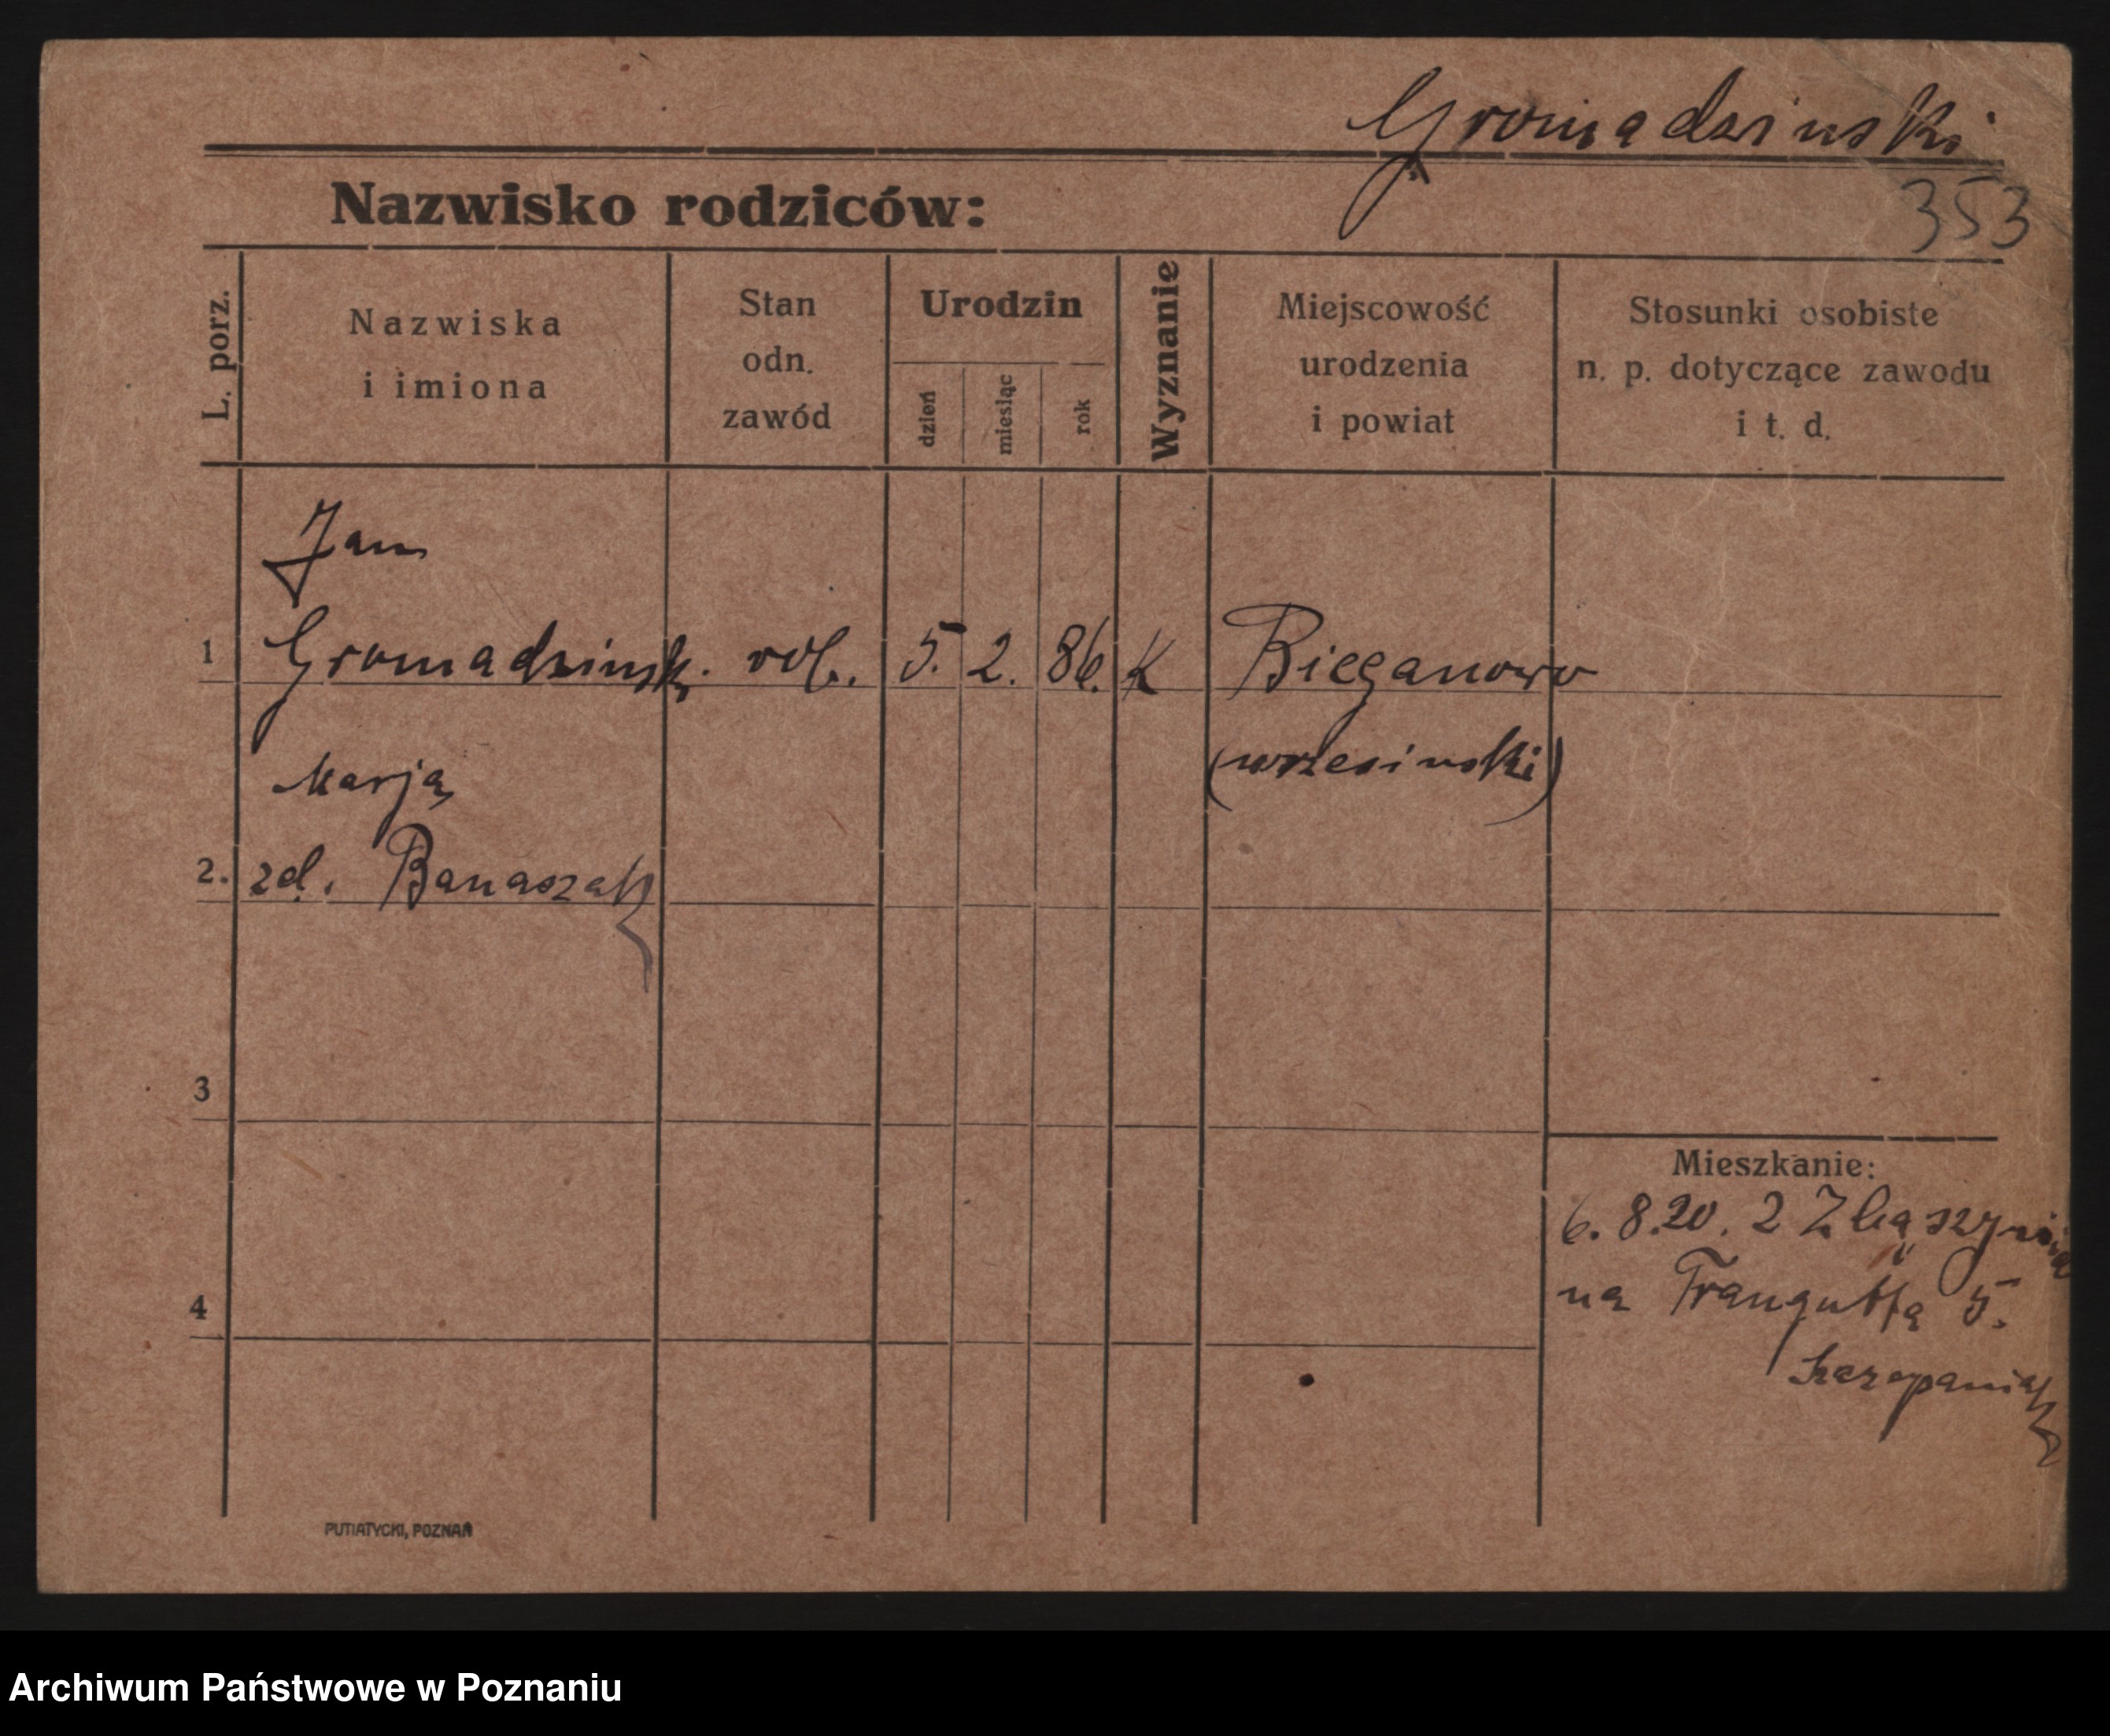 Gromadzinski
353
Nazwisko rodziców:
L. porz.
Nazwiska
i imiona
Stan
odn.
zawód
Urodzin
dzień
miesiąc
rok
Wyznanie
Miejscowość
urodzenia
i powiat
Stosunki osobiste
n. p. dotyczące zawodu
i t. d.
Jan
1 Gromadzinski rob. 5. 2. 86. K Bieganowo
(wrzesinski)
Marja
2. zd. Banaszak
3
4
Mieszkanie:
6. 8. 20. z Zbąszynia
na Traugutta 5.
Szczepaniak
PUTIATYCKI, POZNAŃ
Archiwum Państwowe w Poznaniu